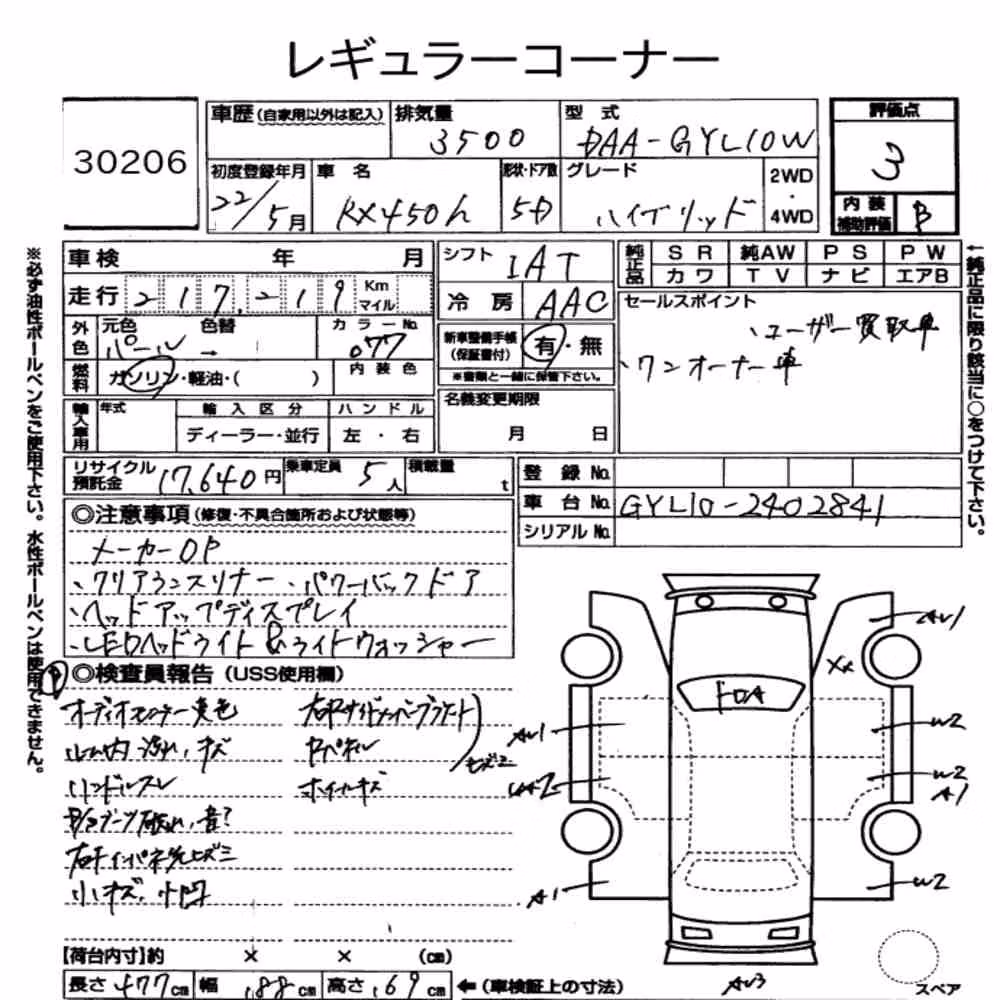 レギュラーコーナー
30206
車歴(自家用以外は記入)
排気量
3500
型式
DAA-GYL10W
評価点
3
初度登録年月
22/5月
車名
RX450h
形状・ドア数
5D
グレード
ハイブリッド
2WD
・
4WD
内装
補助評価
B
車検 年 月
シフト
IAT
純正品
SR 純AW PS PW
カワ TV ナビ エアB
走行 217,219 Km マイル
冷房 AAC
セールスポイント
、ユーザー買取車
、ワンオーナー車
外色
元色 色替
パール →
カラーNo.
077
内装色
新車整備手帳
(保証書付)
有・無
※書類と一緒に保管下さい。
燃料
ガソリン・軽油・( )
輸入車用
年式
輸入区分
ディーラー・並行
ハンドル
左・右
名義変更期限
月 日
リサイクル
預託金
17,640円
乗車定員
5人
積載量
t
登録No.
車台No. GYL10-2402841
シリアルNo.
◎注意事項(修復・不具合箇所および状態等)
メーカーOP
、クリアランスソナー、パワーバックドア
、ヘッドアップディスプレイ
、LEDヘッドライト&ライトウォッシャー
◎検査員報告(USS使用欄)
ルーム内 汚れ、キズ
ハンドルスレ
ブーツ破れ、音?
ホイールキズ
小キズ、小凹
AV1
XX
AV1
W2
W2
A1
A1
W2
AV3
スペア
【荷台内寸】約 × × (cm)
長さ 477cm 幅 188cm 高さ 169cm ←(車検証上の寸法)
※必ず油性ボールペンをご使用下さい。水性ボールペンは使用できません。
←純正品に限り該当に○をつけて下さい。